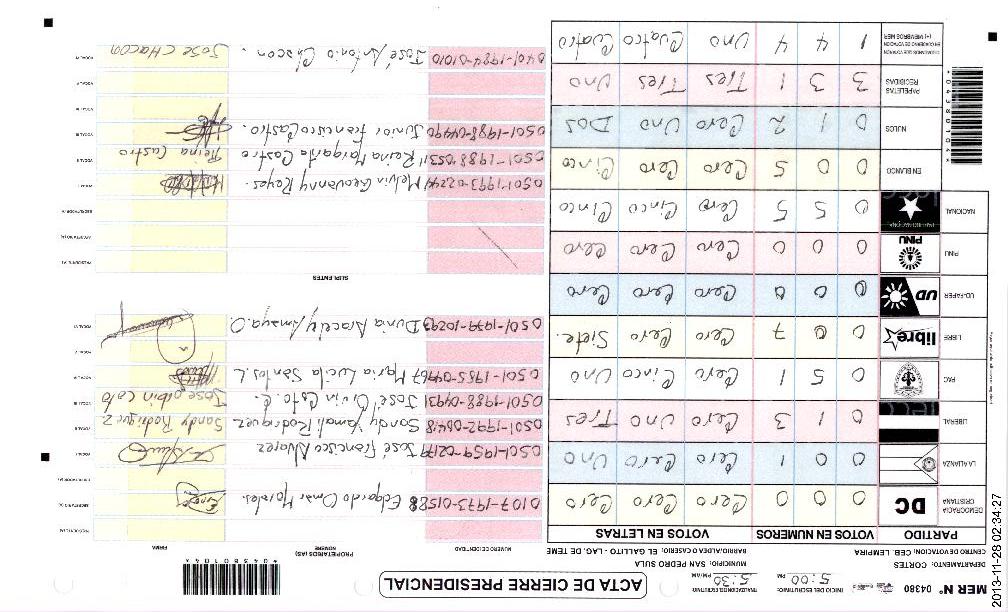 MER N° 04380
INICIO DEL ESCRUTINIO: 5:00 PM
FINALIZACION ESCRUTINIO: 5:30 PM/AM
ACTA DE CIERRE PRESIDENCIAL
*04380104*
DEPARTAMENTO: CORTES
MUNICIPIO: SAN PEDRO SULA
CENTRO DE VOTACION: CEB. LEMPIRA
BARRIO/ALDEA O CASERIO: EL GALLITO - LAG. DE TEME
PARTIDO VOTOS EN NUMEROS VOTOS EN LETRAS
DEMOCRACIA CRISTIANA DC 0 0 0 Cero Cero Cero
LA ALIANZA 0 0 1 Cero Cero Uno
LIBERAL 0 1 3 Cero Uno Tres
PAC 0 5 1 Cero Cinco Uno
LIBRE libre 0 0 7 Cero Cero Siete.
UD-FAPER UD 0 0 0 Cero Cero Cero
PINU PINU 0 0 0 Cero Cero Cero
NACIONAL 0 5 5 Cero Cinco Cinco
EN BLANCO 0 0 5 Cero Cero Cinco
NULOS 0 1 2 Cero Uno Dos
PAPELETAS RECIBIDAS 3 3 1 Tres Tres Uno
CIUDADANOS QUE VOTARON EN CUADERNO DE VOTACION (+) MIEMBROS MER 1 4 4 Uno Cuatro Cuatro
*04380104*
NUMERO DE IDENTIDAD PROPIETARIOS (AS) NOMBRE FIRMA
PRESIDENTE (A)
SECRETARIO (A) 0107-1973-01588 Edgardo Omar Morales.
ESCRUTADOR (A)
VOCAL I 0501-1959-02179 José Francisco Alvarez
VOCAL II 0501-1992-06418 Sandy Yamali Rodriguez Sandy Rodriguez
VOCAL III 0501-1988-04931 José Oivin Coto C. Jose oibin coto
VOCAL IV 0501-1955-04467 Maria Lucila Santos L.
VOCAL V
VOCAL VI 0501-1979-10293 Dunia Aracely Amaya O.
SUPLENTES
PRESIDENTE (A)
SECRETARIO (A)
ESCRUTADOR (A)
VOCAL I 0501-1993-02244 Melvin Geovanny Reyes.
VOCAL II 0501-1988-05311 Reina Margarita Castro Reina Castro
VOCAL III 0501-1988-04490 Junior Francisco Castro.
VOCAL IV
VOCAL V
VOCAL VI 0401-1984-01010 José Antonio Chacon. JOSE CHACON
2013-11-28 02:34:27